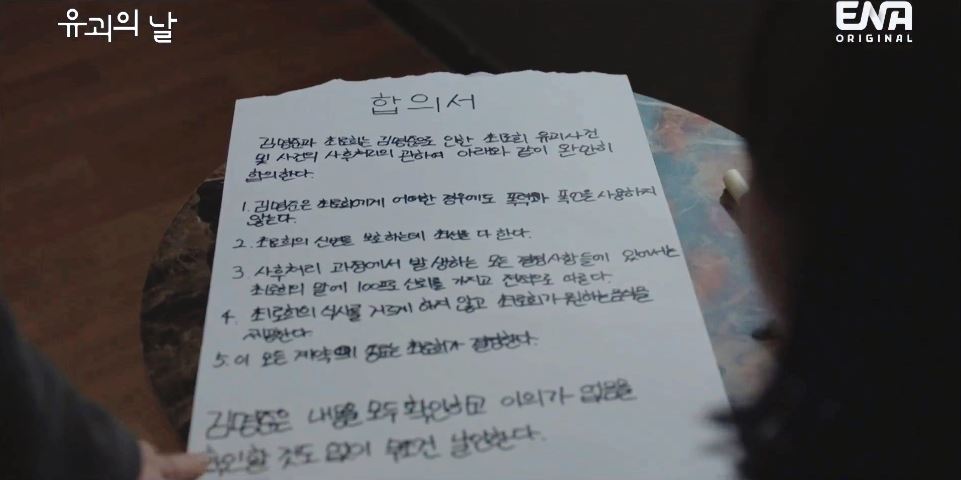 유괴의 날
ENA
ORIGINAL
합의서
김명준과 최로희는 김명준으로 인한 최로희 유괴사건
및 사건의 사후처리의 관하여 아래와 같이 완만히
합의한다.
1. 김명준은 최로희에게 어떠한 경우에도 폭력과 폭언을 사용하지
않는다.
2. 최로희의 신변을 보호하는데 최선을 다 한다.
3. 사후처리 과정에서 발생하는 모든 결정사항들에 있어서는
최로희의 말에 100프로 신뢰를 가지고 전적으로 따른다.
4. 최로희의 식사를 거르게 하지 않고 최로희가 원하는 음식을
제공한다.
5. 이 모든 계약의 종료는 최로희가 결정한다.
김명준은 내용을 모두 확인하고 이의가 없음을
확인할 것도 없이 무조건 날인한다.